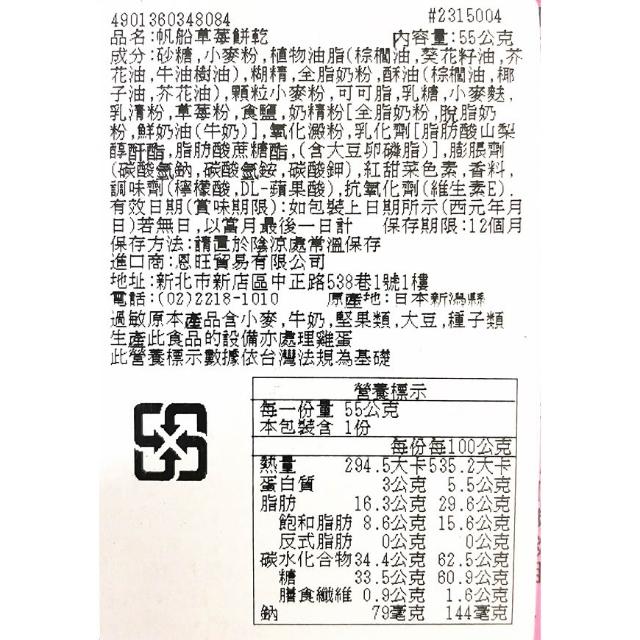 4901360348084 #2315004
品名:帆船草莓餅乾 內容量:55公克
成分:砂糖,小麥粉,植物油脂(棕櫚油,葵花籽油,芥
花油,牛油樹油),糊精,全脂奶粉,酥油(棕櫚油,椰
子油,芥花油),顆粒小麥粉,可可脂,乳糖,小麥麩,
乳清粉,草莓粉,食鹽,奶精粉[全脂奶粉,脫脂奶
粉,鮮奶油(牛奶)],氧化澱粉,乳化劑[脂肪酸山梨
醇酐酯,脂肪酸蔗糖酯,(含大豆卵磷脂)],膨脹劑
(碳酸氫鈉,碳酸氫銨,碳酸鉀),紅甜菜色素,香料,
調味劑(檸檬酸,DL-蘋果酸),抗氧化劑(維生素E).
有效日期(賞味期限):如包裝上日期所示(西元年月
日)若無日,以當月最後一日計 保存期限:12個月
保存方法:請置於陰涼處常溫保存
進口商:恩旺貿易有限公司
地址:新北市新店區中正路538巷1號1樓
電話:(02)2218-1010 原產地:日本新潟縣
過敏原本產品含小麥,牛奶,堅果類,大豆,種子類
生產此食品的設備亦處理雞蛋
此營養標示數據依台灣法規為基礎
營養標示
每一份量 55公克
本包裝含 1份
每份 每100公克
熱量 294.5大卡 535.2大卡
蛋白質 3公克 5.5公克
脂肪 16.3公克 29.6公克
飽和脂肪 8.6公克 15.6公克
反式脂肪 0公克 0公克
碳水化合物 34.4公克 62.5公克
糖 33.5公克 60.9公克
膳食纖維 0.9公克 1.6公克
鈉 79毫克 144毫克